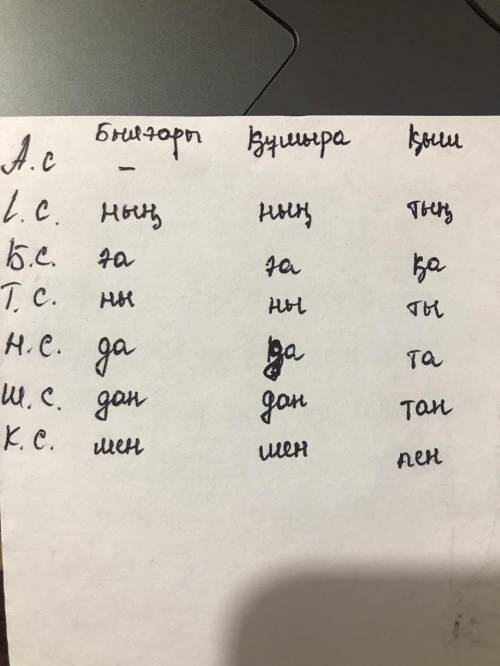 Былғары Құмыра Қыш
А.с –
І.с. ның ның тың
Б.с. ға ға қа
Т.с. ны ны ты
Н.с. да да та
Ш.с. дан дан тан
К.с. мен мен пен